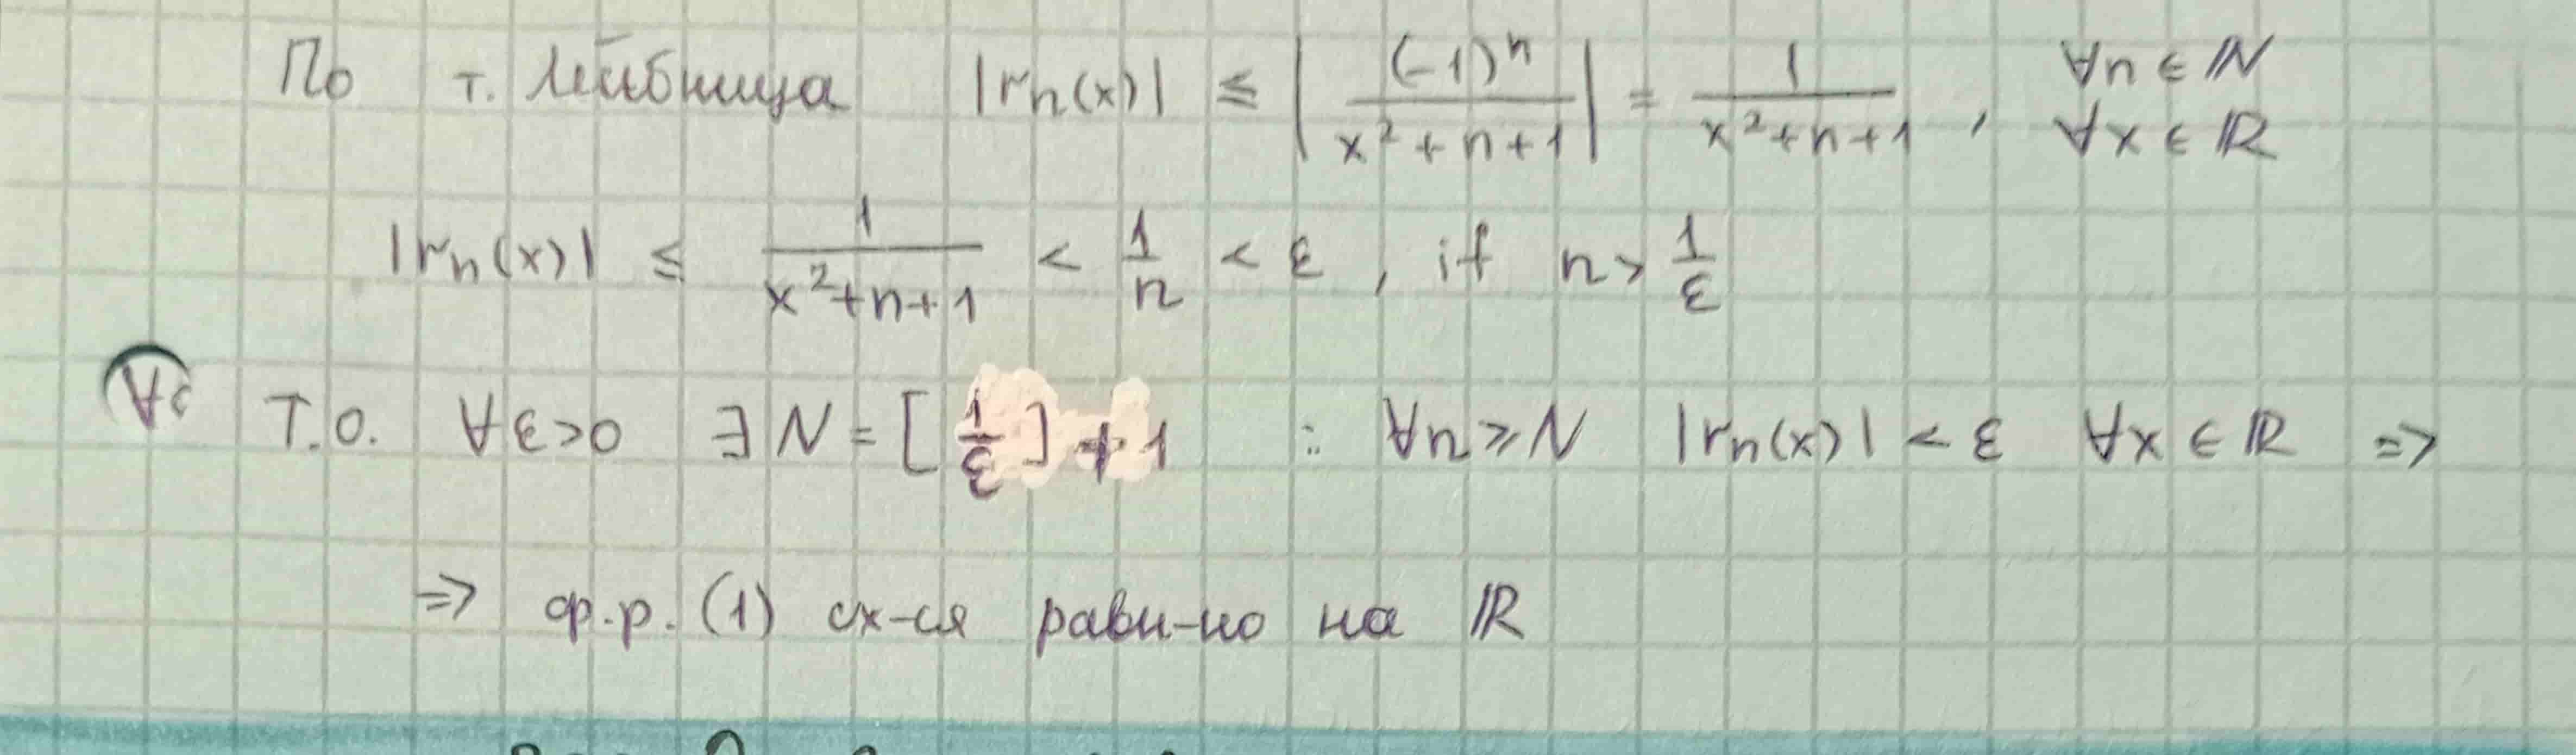 По т. Лейбница |rₙ(x)| ≤ |(-1)ⁿ / (x²+n+1)| = 1 / (x²+n+1), ∀n ∈ ℕ ∀x ∈ ℝ
|rₙ(x)| ≤ 1 / (x²+n+1) < 1/n < ε, if n > 1/ε
Т.О. ∀ε>0 ∃N = [1/ε] + 1 : ∀n ≥ N |rₙ(x)| < ε ∀x ∈ ℝ =>
=> ф.р. (1) сх-ся равн-но на ℝ